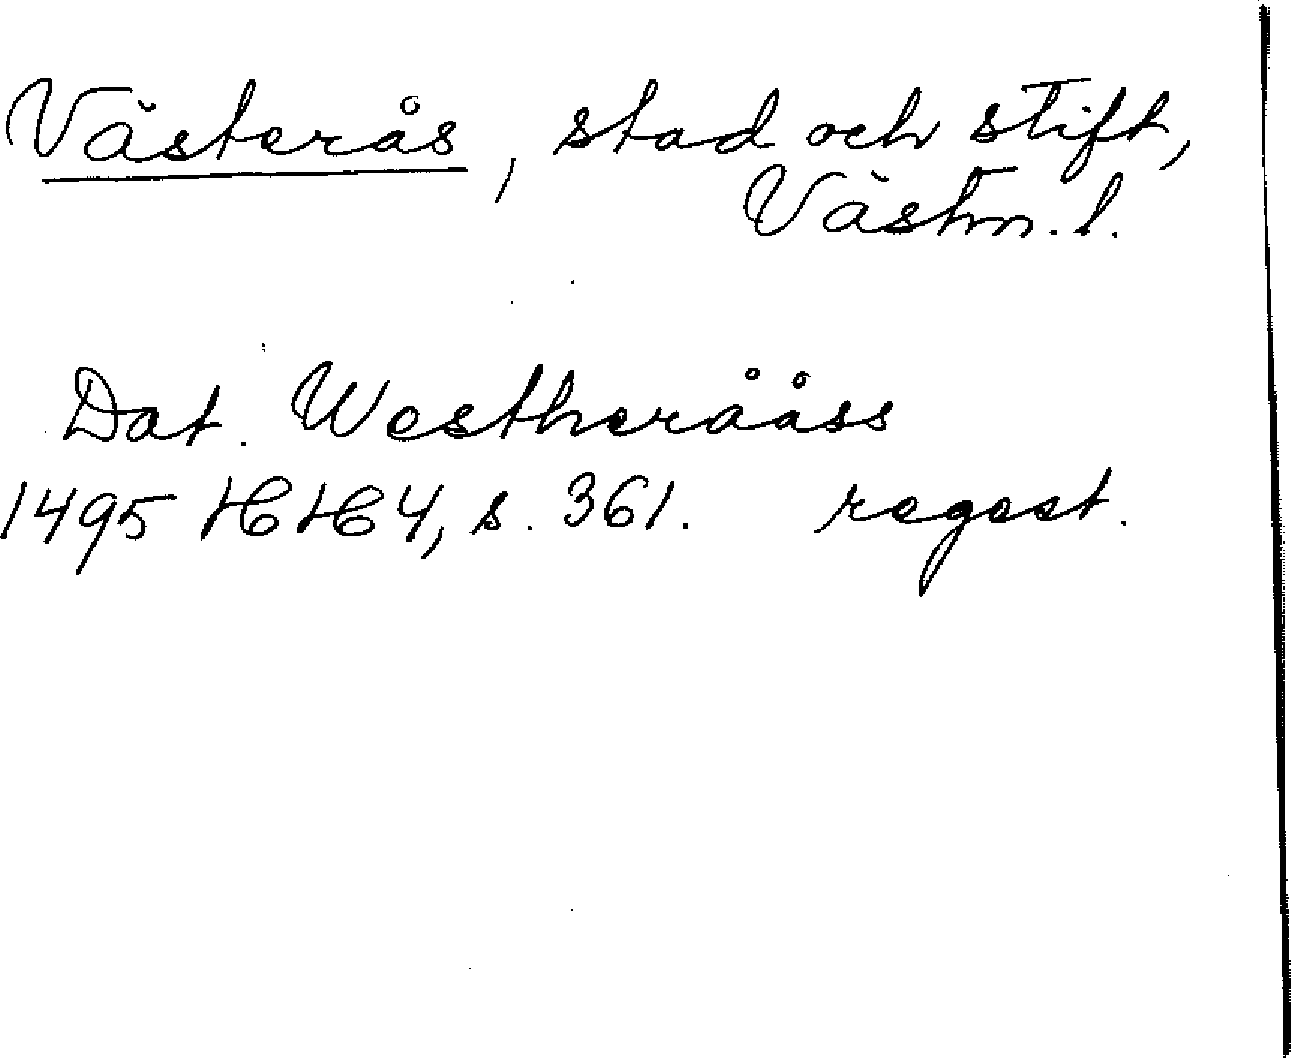 Västerås, stad och stift,
Västm. l.
Dat. Westherååss
1495 HH 4, s. 361. regest.